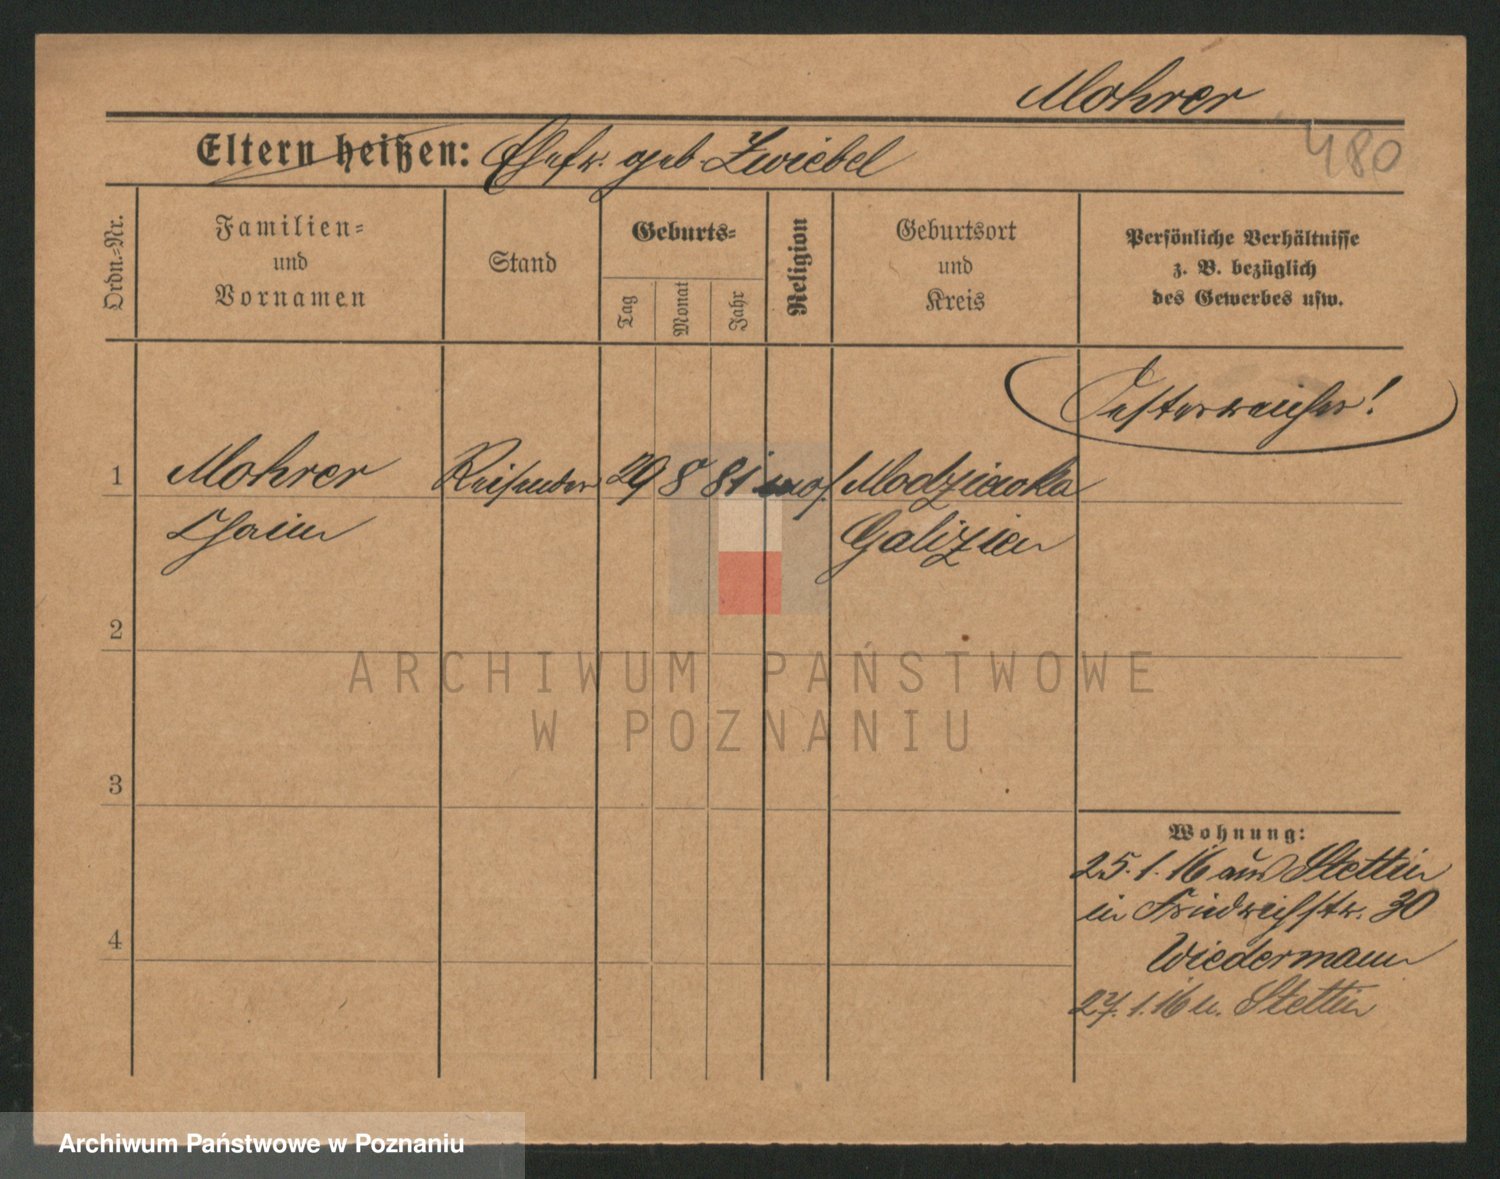 Mohrer
480
Eltern heißen: Ehefr. geb. Zwiebel
Ordn.-Nr.
Familien-
und
Vornamen
Stand
Geburts-
Tag
Monat
Jahr
Religion
Geburtsort
und
Kreis
Persönliche Verhältnisse
z. B. bezüglich
des Gewerbes usw.
Oesterreicher!
1 Mohrer Reisender 29 8 81 mos.
Chaim Galizien
2
3
4
Wohnung:
25.1.16 aus Stettin
in Friedrichstr. 30
Wiedermann
27.1.16 n. Stettin
ARCHIWUM PAŃSTWOWE
W POZNANIU
Archiwum Państwowe w Poznaniu